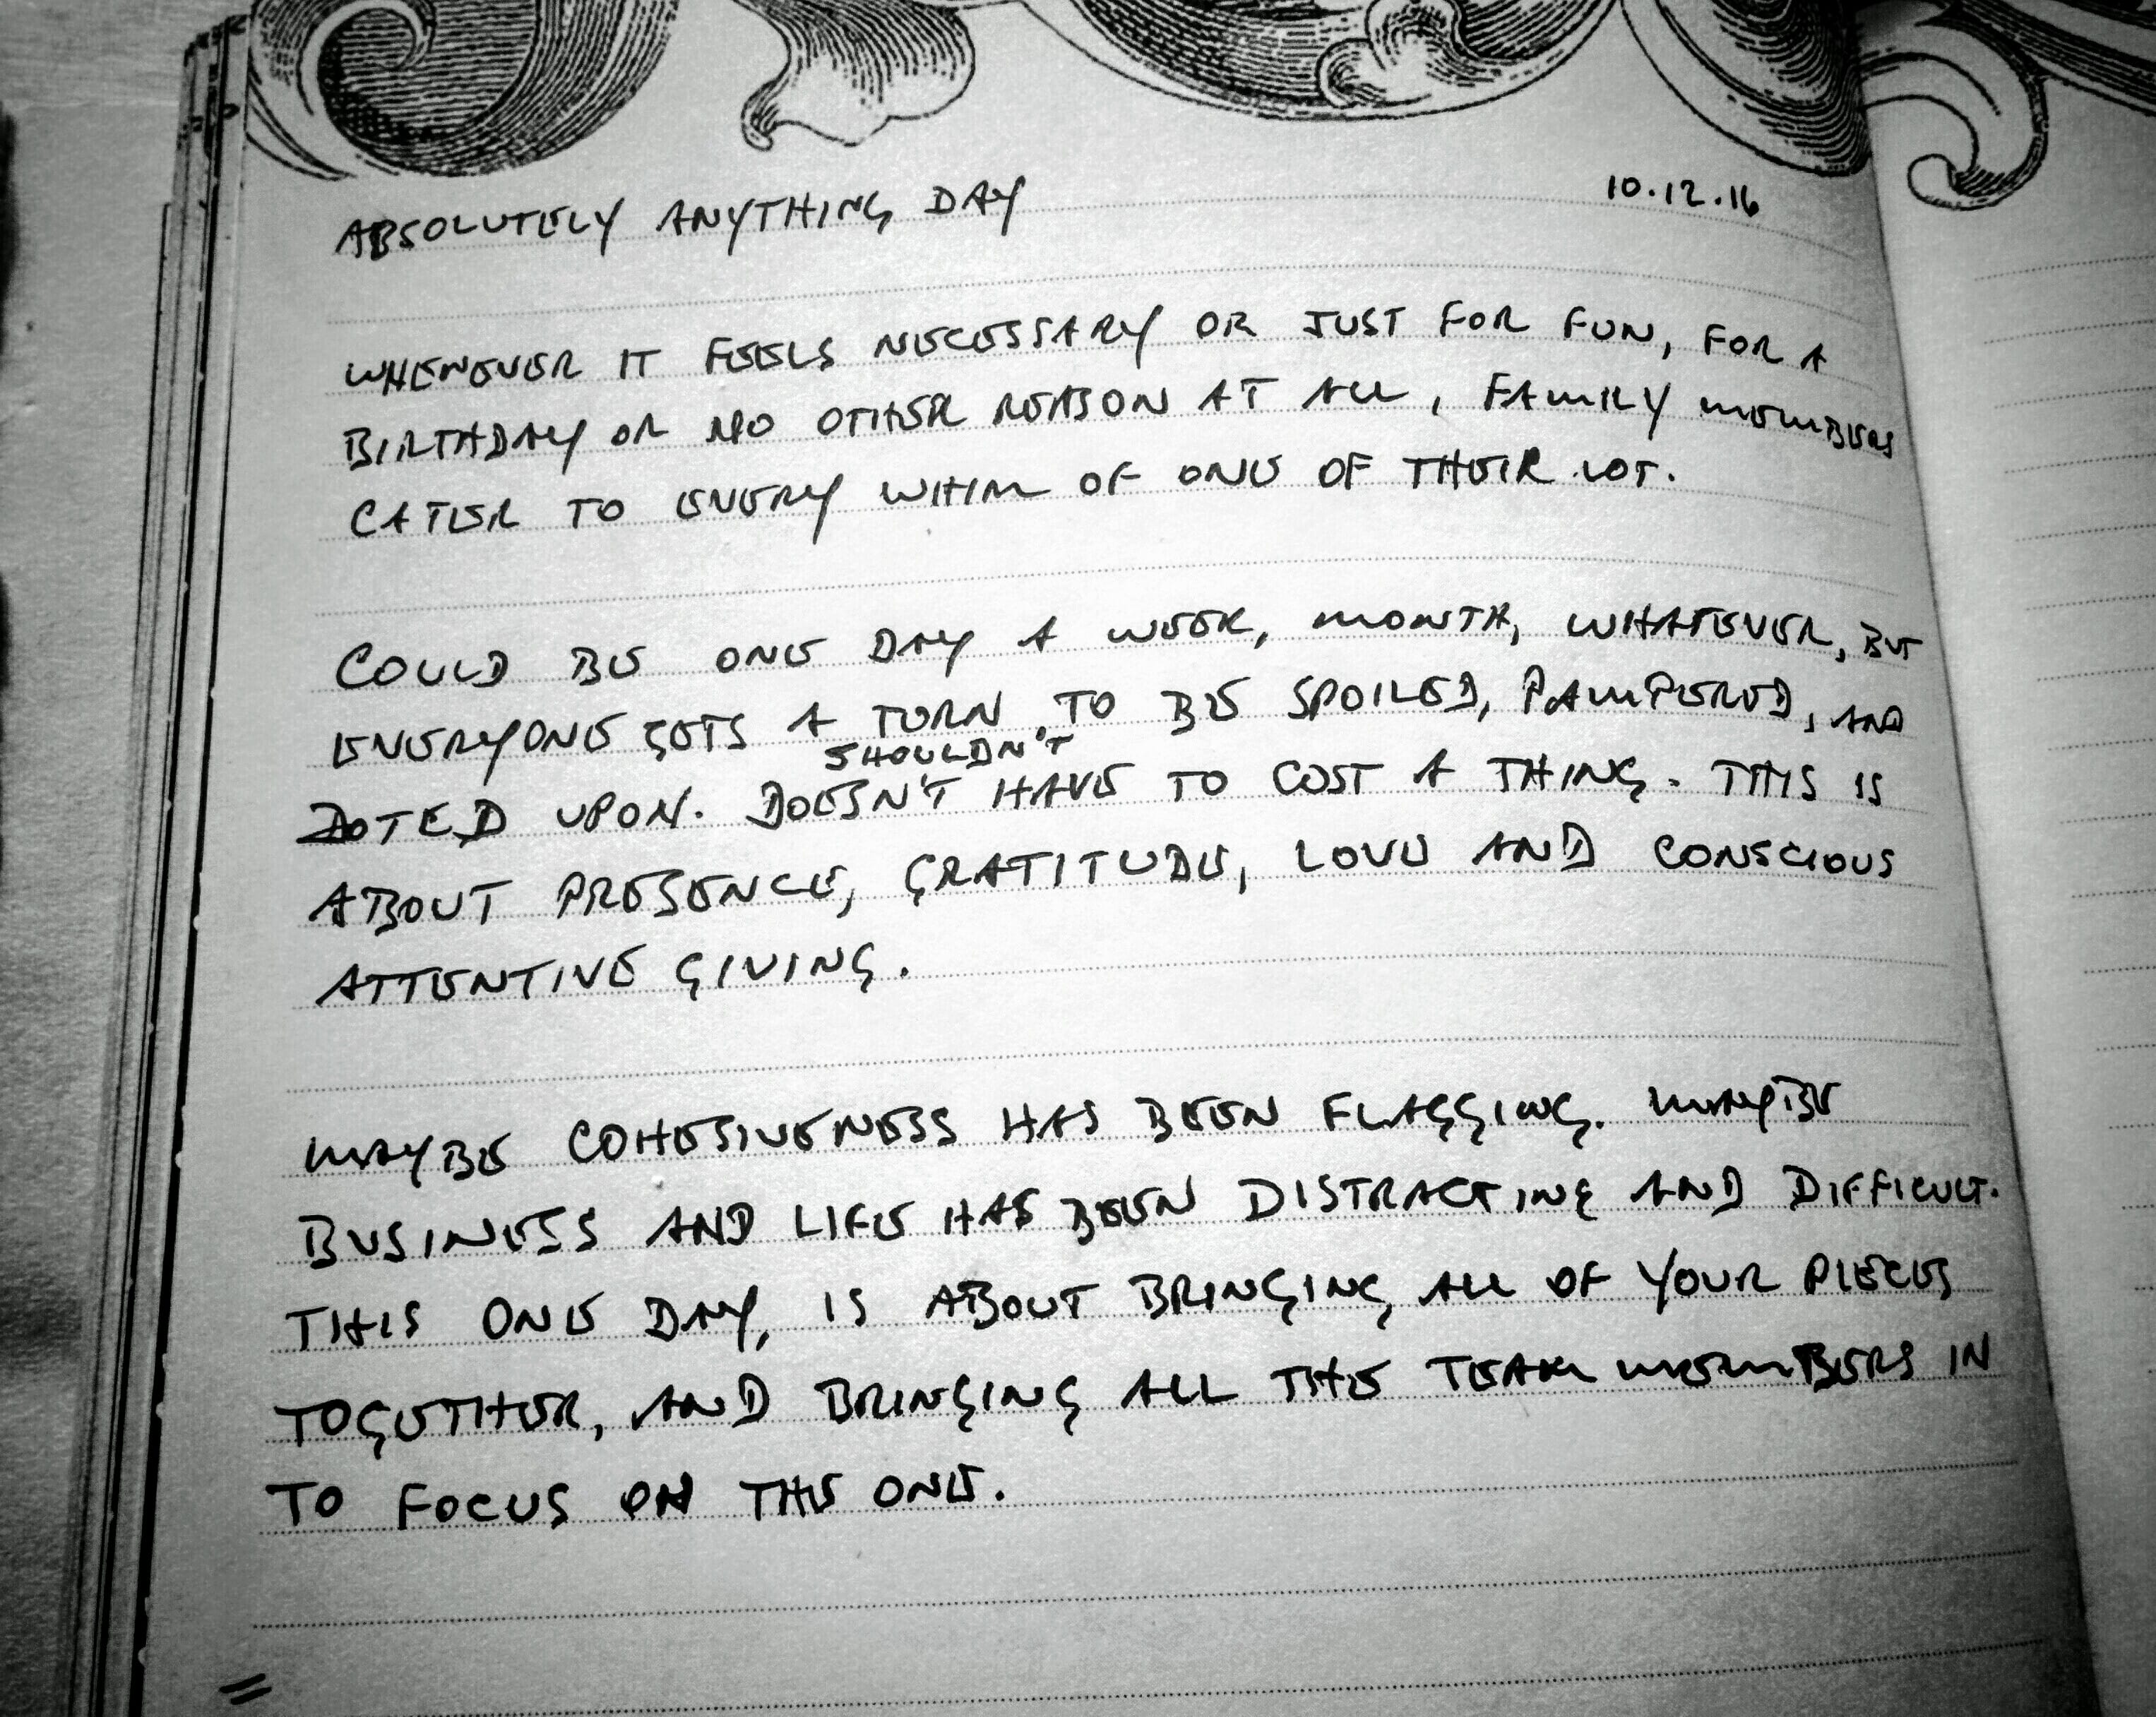 ABSOLUTELY ANYTHING DAY 10.12.16
WHENEVER IT FEELS NECESSARY OR JUST FOR FUN, FOR A
BIRTHDAY OR NO OTHER REASON AT ALL, FAMILY MEMBERS
CATER TO EVERY WHIM OF ONE OF THEIR LOT.
COULD BE ONE DAY A WEEK, MONTH, WHATEVER, BUT
EVERYONE GETS A TURN TO BE SPOILED, PAMPERED, AND
SHOULDN'T
DOTED UPON. DOESN'T HAVE TO COST A THING. THIS IS
ABOUT PRESENCE, GRATITUDE, LOVE AND CONSCIOUS
ATTENTIVE GIVING.
MAYBE COHESIVENESS HAS BEEN FLAGGING. MAYBE
BUSINESS AND LIFE HAS BEEN DISTRACTING AND DIFFICULT.
THIS ONE DAY, IS ABOUT BRINGING ALL OF YOUR PIECES
TOGETHER, AND BRINGING ALL THE TEAM MEMBERS IN
TO FOCUS ON THE ONE.